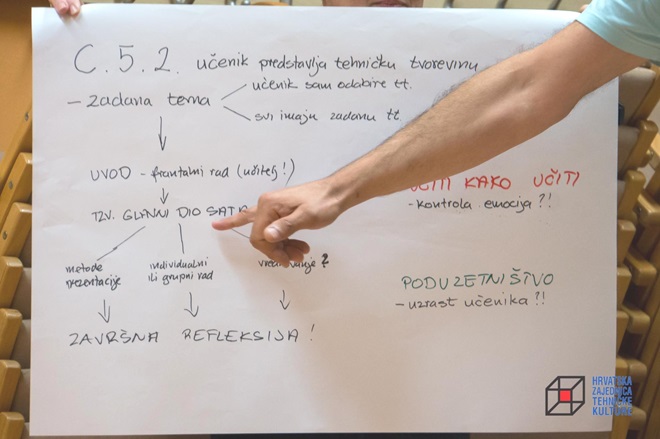 C.5.2. učenik predstavlja tehničku tvorevinu
učenik sam odabire tt.
- zadana tema
svi imaju zadanu tt.
UVOD - frontalni rad (učitelj!)
TZV. GLAVNI DIO
UČITI KAKO UČITI
- kontrola emocija?!
metode
prezentacije
individualni
ili grupni rad
?
PODUZETNIŠTVO
- uzrast učenika?!
ZAVRŠNA REFLEKSIJA!
HRVATSKA
ZAJEDNICA
TEHNIČKE
KULTURE